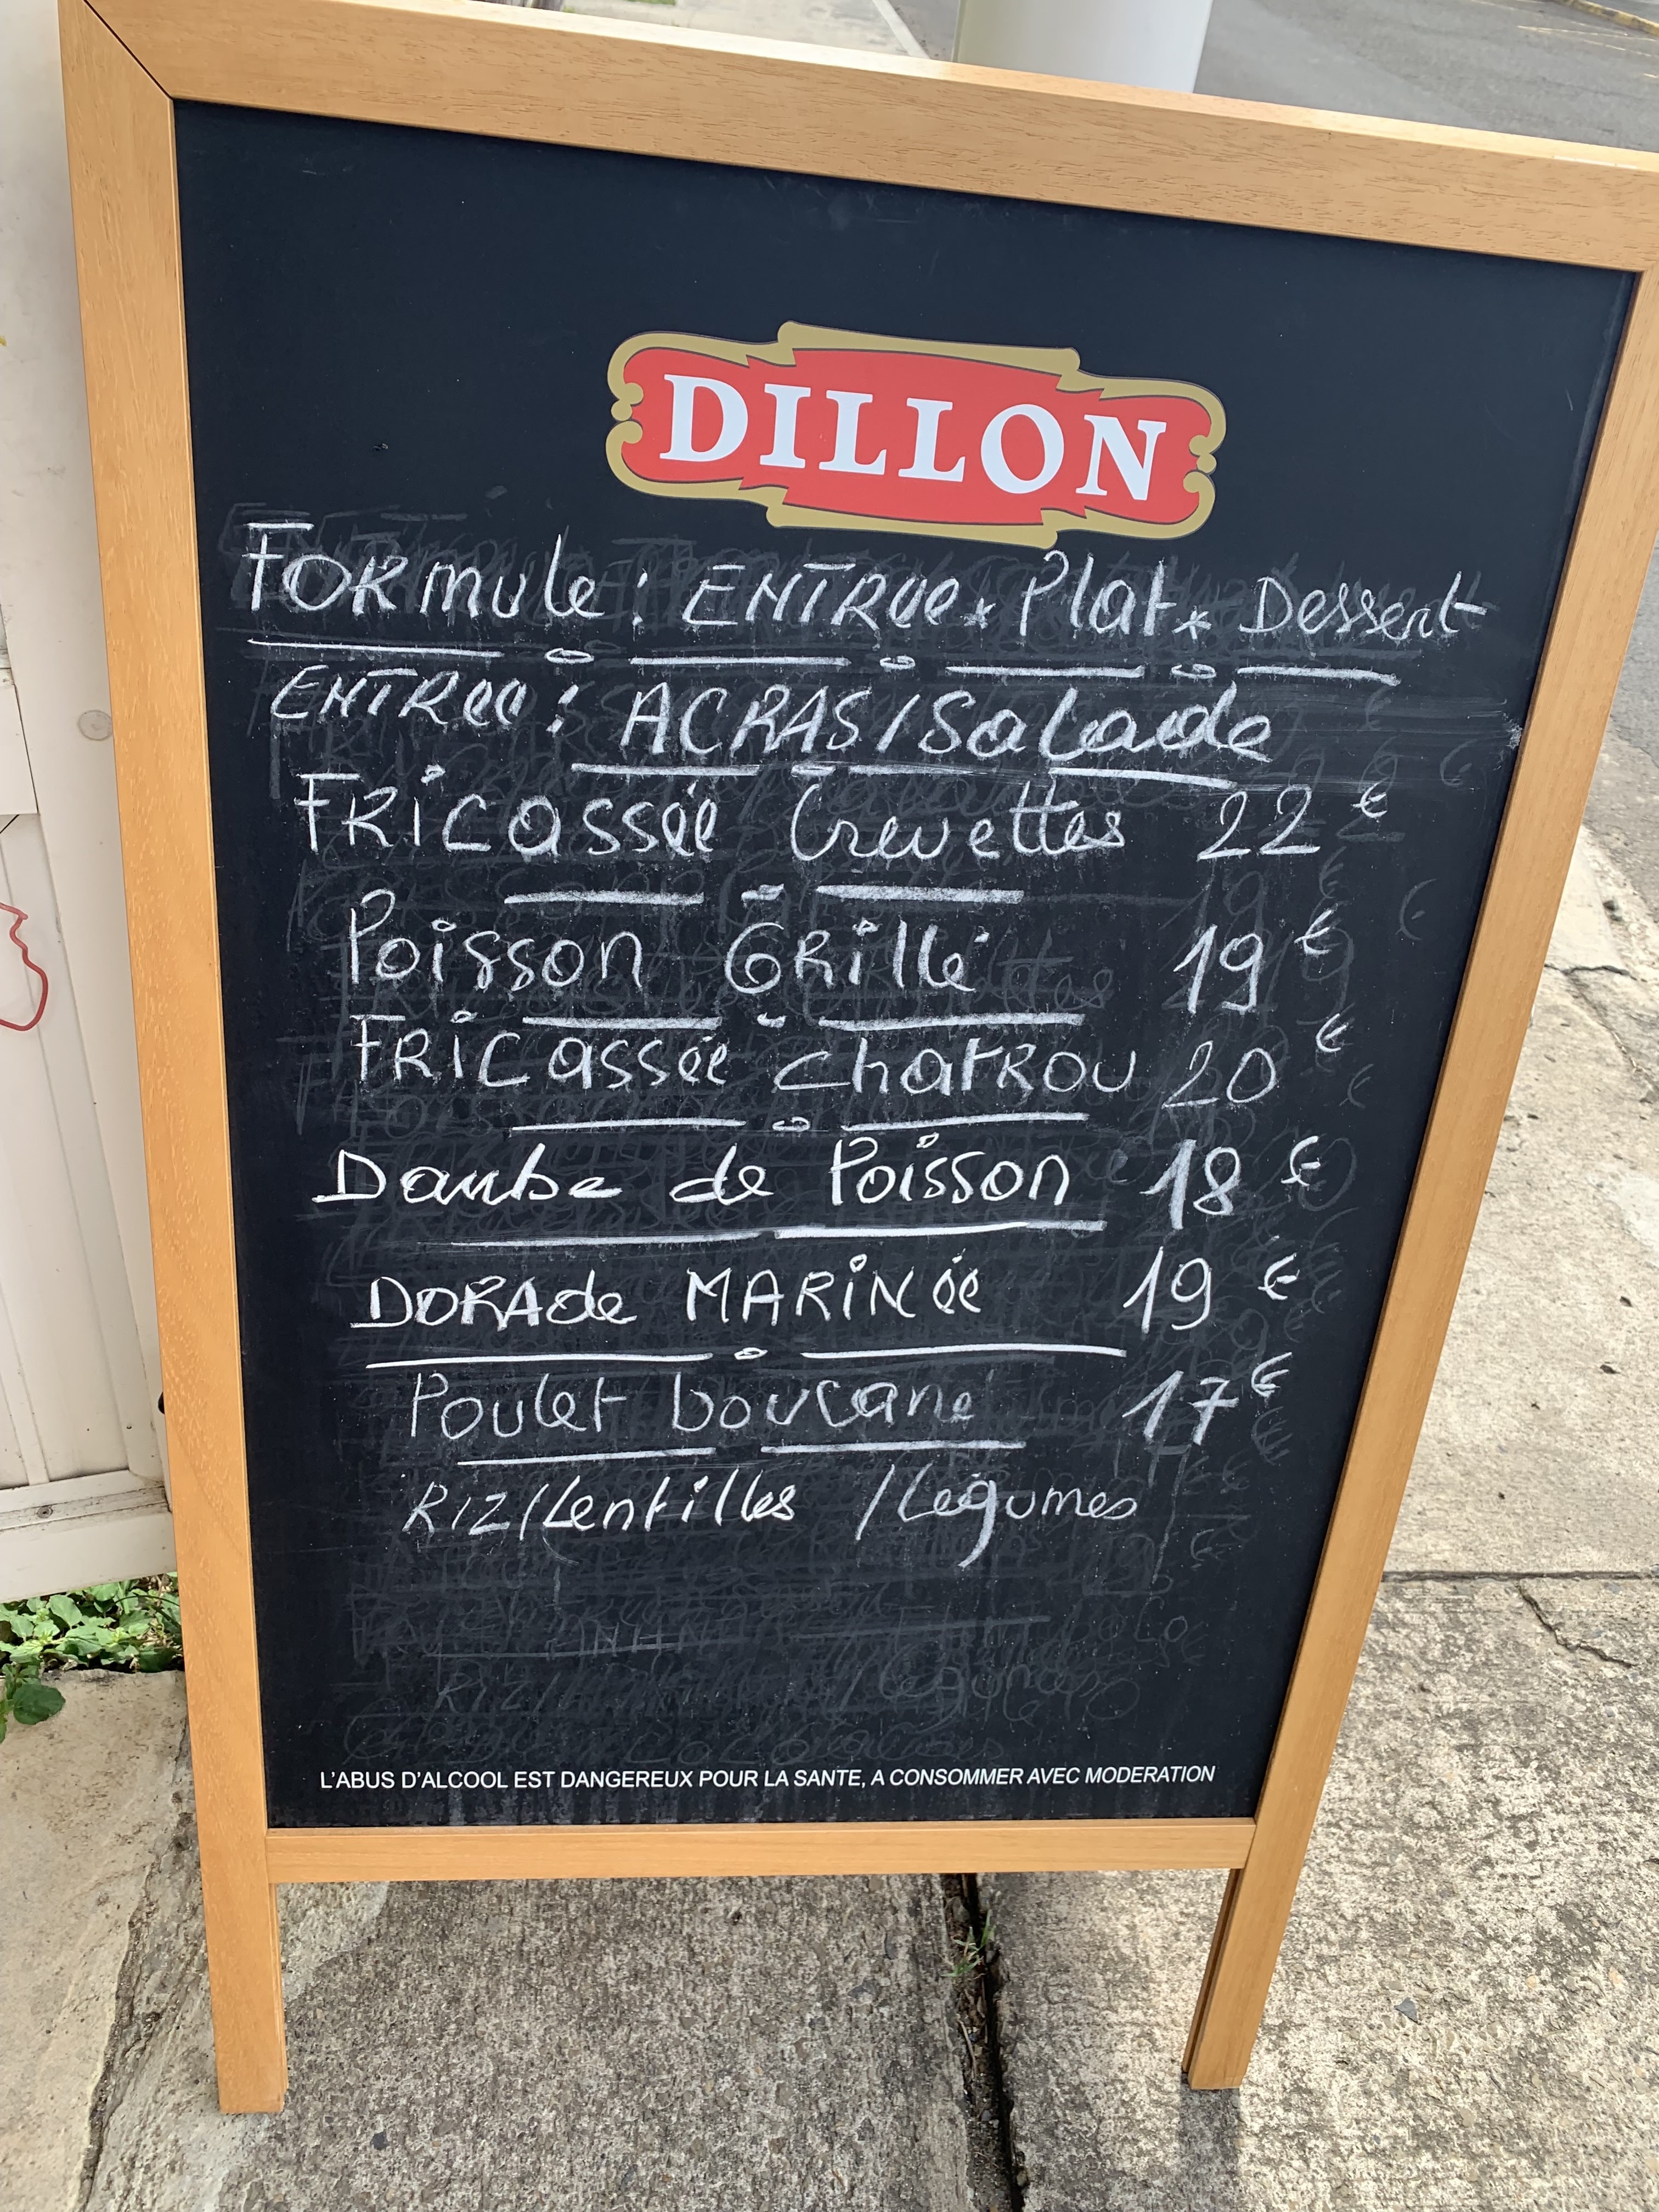 DILLON
FORmule : ENTRee * Plat * Dessent
ENTRee : ACRAS/Salade
FRicassée Crevettes 22 €
Poisson GRillé 19 €
FRicassée chatROU 20 €
Daube de Poisson 18 €
DORAde MARiNée 19 €
Poulet boucané 17 €
RIZ/Lentilles /Légumes
L'ABUS D'ALCOOL EST DANGEREUX POUR LA SANTE, A CONSOMMER AVEC MODERATION